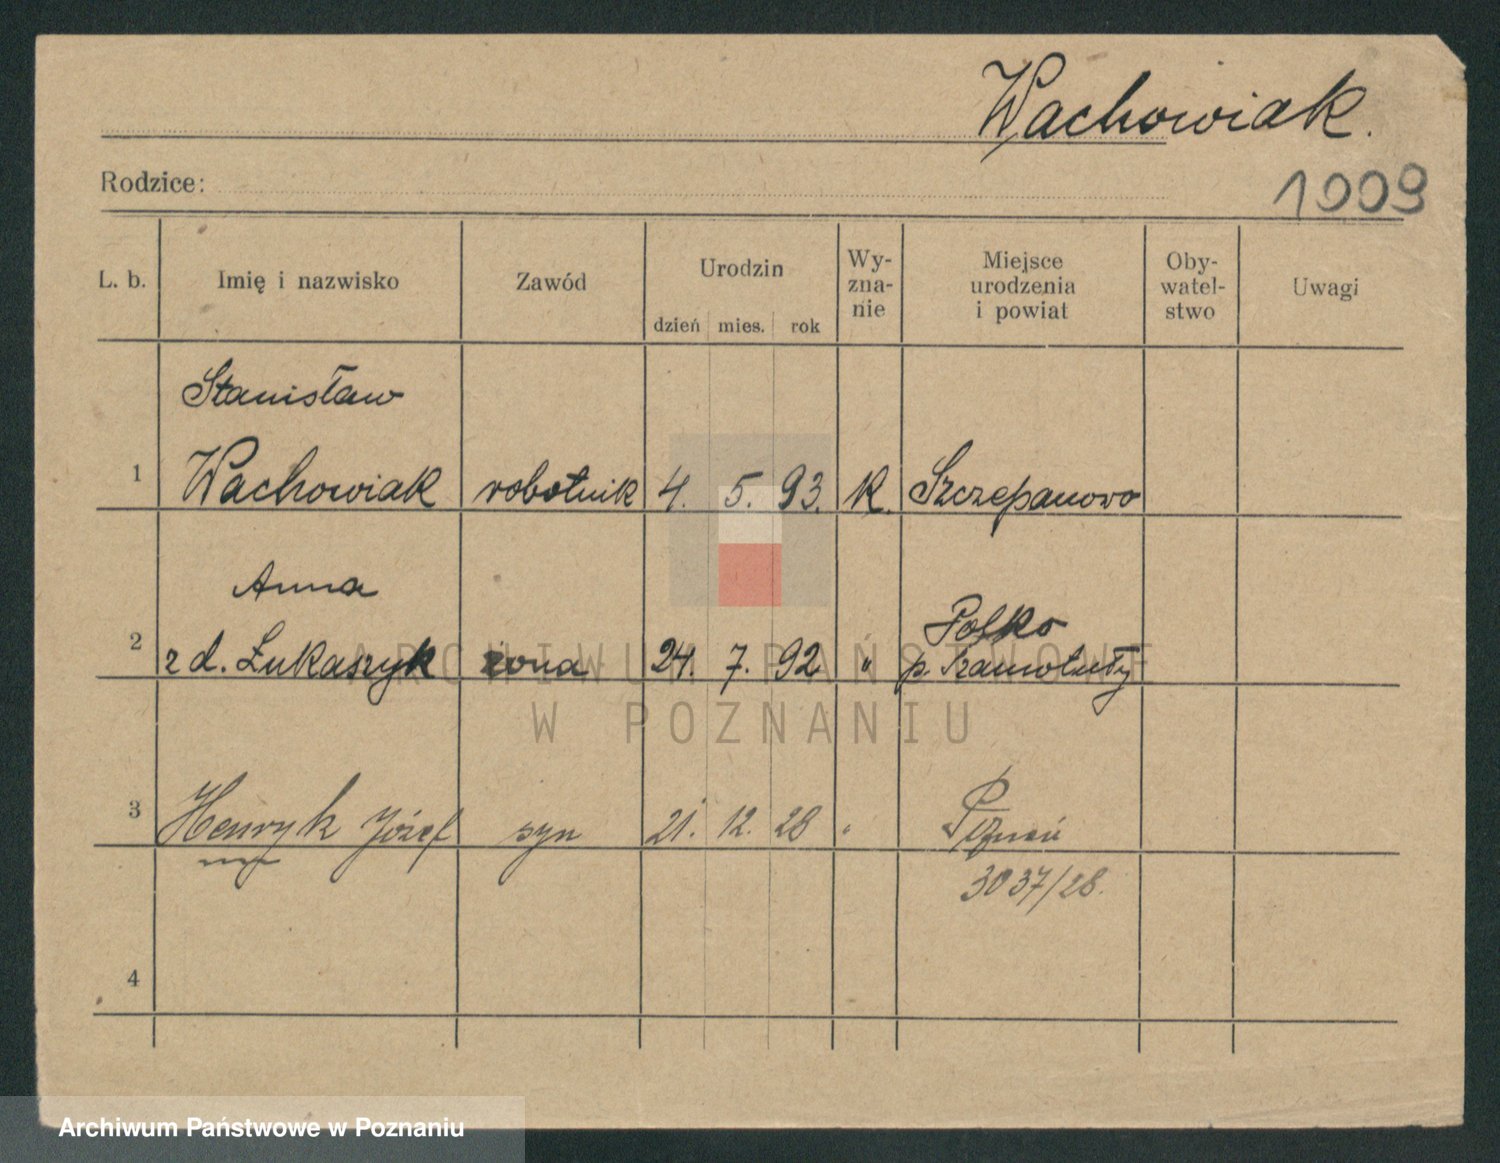 Wachowiak.
Rodzice:
1009
L. b. Imię i nazwisko Zawód Urodzin dzień mies. rok Wy-zna-nie Miejsce urodzenia i powiat Oby-watel-stwo Uwagi
Stanisław
1 Wachowiak robotnik 4. 5. 93. k. Szczepanowo
Anna
Polko
2 z d. Łukaszyk żona 24. 7. 92 " p. Szamotuły
3 Henryk Józef syn 21. 12. 28 " Poznań
3037/28.
4
ARCHIWUM PAŃSTWOWE
W POZNANIU
Archiwum Państwowe w Poznaniu